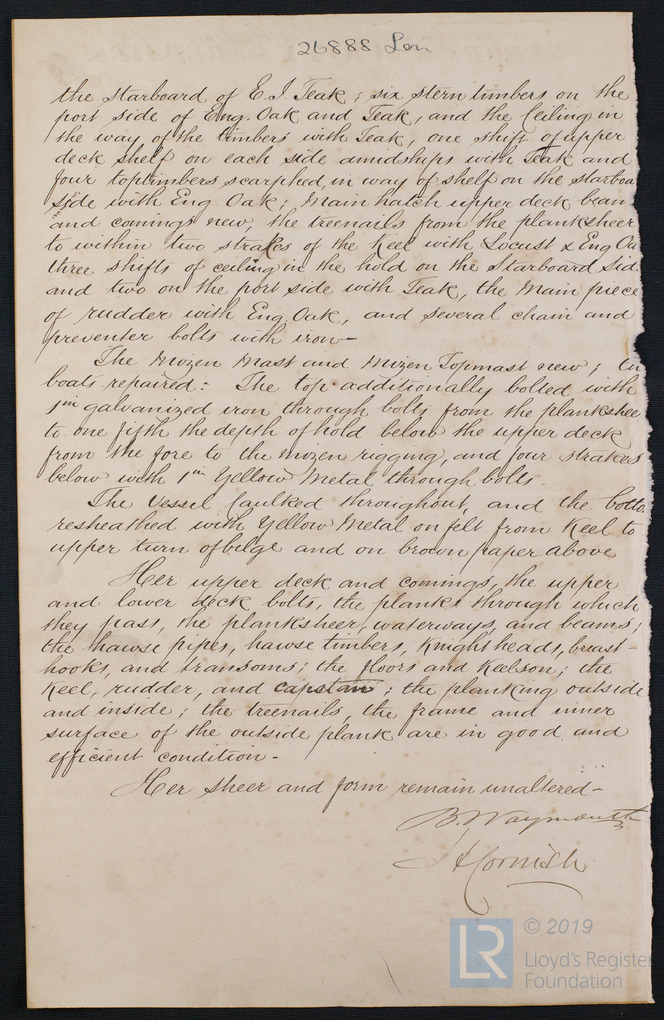 26888 Lon
the starboard of E.I. Teak; six stern timbers on the
port side of Eng. Oak and Teak, and the Ceiling in
the way of the timbers with Teak, one shift of upper
deck shelf on each side amidships with Teak and
four toptimbers scarphed in way of shelf on the starboa
side with Eng Oak; Main hatch upper deck beam
and comings new, the treenails from the planksheer
to within two strakes of the Keel with Locust & Eng Oa
three shifts of ceiling in the hold on the Starboard Sid
and two on the port side with Teak, the Main piece
of rudder with Eng Oak, and several chain and
preventer bolts with iron-
The Mizen Mast and Mizen Topmast new;
boats repaired: The top additionally bolted with
1 in galvanized iron through bolts from the plankshee
to one fifth the depth of hold below the upper deck
from the fore to the mizen rigging, and four strakes
below with 1 in Yellow Metal through bolts-
The Vessel Caulked throughout, and the botto
resheathed with Yellow Metal on felt from Keel to
upper turn of bilge and on brown paper above
Her upper deck and comings, the upper
and lower deck bolts, the planks through which
they pass, the planksheer, waterways, and beams;
the hawse pipes, hawse timbers, Knightheads, breast-
hooks, and transoms; the floors and Keelson; the
Keel, rudder, and capstan; the planking outside
and inside; the treenails, the frame and inner
surface of the outside plank are in good and
efficient condition-
Her sheer and form remain unaltered-
B. Waymouth
J H Cornish
LR
© 2019
Lloyd's Register
Foundation